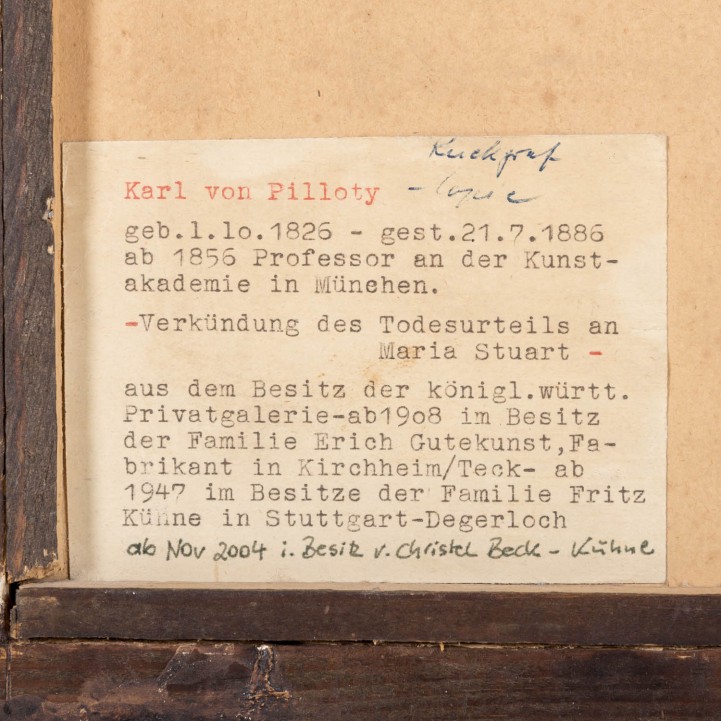 Karl von Pilloty - Copie
geb.1.1o.1826 - gest.21.7.1886
ab 1856 Professor an der Kunst-
akademie in München.
-Verkündung des Todesurteils an
Maria Stuart -
aus dem Besitz der königl.württ.
Privatgalerie-ab19o8 im Besitz
der Familie Erich Gutekunst,Fa-
brikant in Kirchheim/Teck- ab
1947 im Besitze der Familie Fritz
Kühne in Stuttgart-Degerloch
ab Nov 2004 i. Besitz v. Christel Beck - Kühne